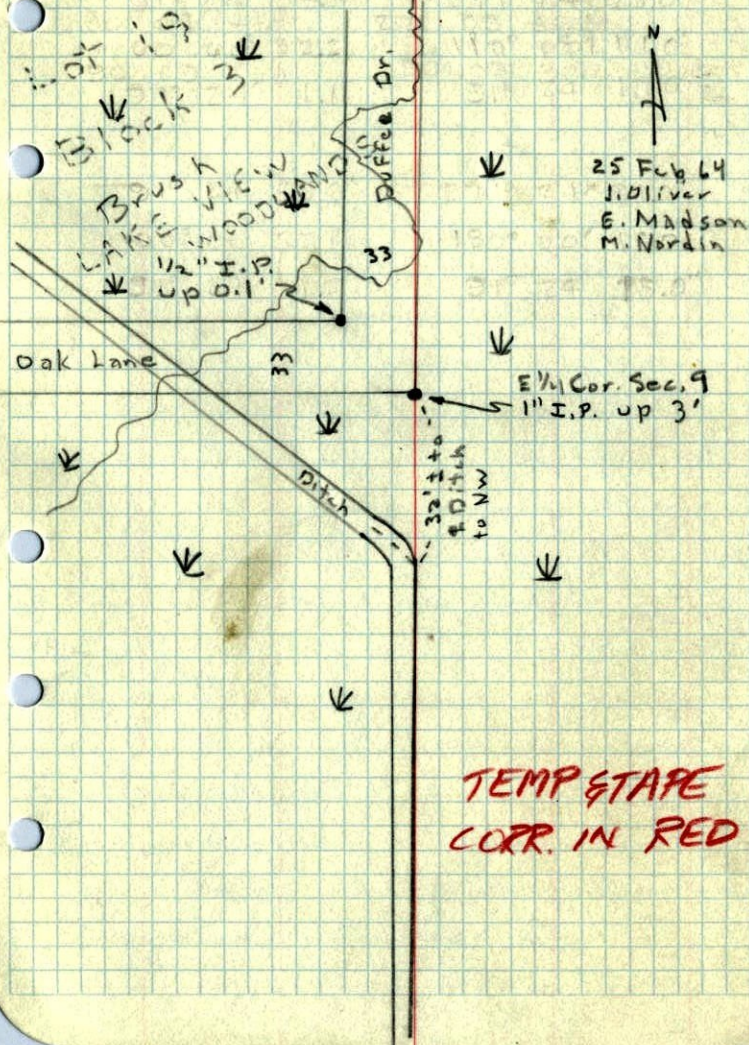 Lot 10
Block 3
Brush
LAKE VIEW
WOODLANDS
Duffee Dr.
N
25 Feb 64
J. Oliver
E. Madson
M. Nordin
1/2" I.P.
up 0.1'
33
Oak Lane
33
E 1/4 Cor. Sec. 9
1" I.P. up 3'
32' ± to
℄ Ditch
to NW
Ditch
TEMP & TAPE
CORR. IN RED